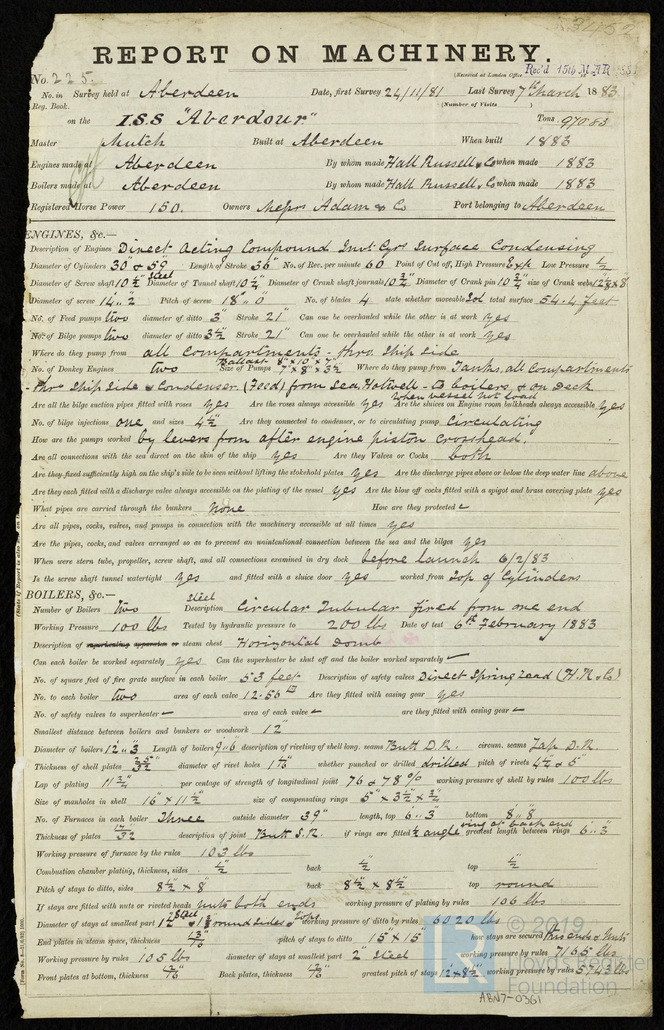 REPORT ON MACHINERY.
No. 225. (Received at London Office Rec'd 15th MAR 188
No. in Survey held at Aberdeen Date, first Survey 24/11/81 Last Survey 7th March 1883
Reg. Book. (Number of Visits )
on the I.S.S "Aberdour" Tons 970.83
Master Mutch Built at Aberdeen When built 1883
Engines made at Aberdeen By whom made Hall Russell & Co when made 1883
Boilers made at Aberdeen By whom made Hall Russell & Co when made 1883
Registered Horse Power 150. Owners Messrs Adam & Co Port belonging to Aberdeen
ENGINES, &c.—
Description of Engines Direct Acting Compound Invt Cyr Surface Condensing
Diameter of Cylinders 30" & 59" Length of Stroke 36" No. of Rev. per minute 60 Point of Cut off, High Pressure Low Pressure 1/2
Diameter of Screw shaft 10 1/2 Steel Diameter of Tunnel shaft 10 1/4 Diameter of Crank shaft journals 10 3/4" Diameter of Crank pin 10 3/4" size of Crank webs
Diameter of screw 14" 2" Pitch of screw 18" 0" No. of blades 4 state whether moveable total surface 54.4 feet
No. of Feed pumps two diameter of ditto 3" Stroke 21" Can one be overhauled while the other is at work yes
No. of Bilge pumps two diameter of ditto 3 1/2 Stroke 21" Can one be overhauled while the other is at work yes
Where do they pump from all Compartments - thro. Ship side
Ballast 8" x 10" x
No. of Donkey Engines two Size of Pumps 7" x 8" x 3 1/2 Where do they pump from Tanks, all Compartments
- Thro Ship Side & Condenser (Feed) from Sea, Hotwell - to boilers & on deck
when vessel not load
Are all the bilge suction pipes fitted with roses yes Are the roses always accessible yes Are the sluices on Engine room bulkheads always accessible yes
No. of bilge injections one and sizes 4 1/2 Are they connected to condenser, or to circulating pump Circulating
How are the pumps worked by levers from after engine piston crosshead.
Are all connections with the sea direct on the skin of the ship yes Are they Valves or Cocks both
Are they fixed sufficiently high on the ship's side to be seen without lifting the stokehold plates yes Are the discharge pipes above or below the deep water line above
Are they each fitted with a discharge valve always accessible on the plating of the vessel yes Are the blow off cocks fitted with a spigot and brass covering plate yes
What pipes are carried through the bunkers None How are they protected
Are all pipes, cocks, valves, and pumps in connection with the machinery accessible at all times yes
Are the pipes, cocks, and valves arranged so as to prevent an unintentional connection between the sea and the bilges yes
When were stern tube, propeller, screw shaft, and all connections examined in dry dock before launch 6/2/83
Is the screw shaft tunnel watertight yes and fitted with a sluice door yes worked from top of Cylinders
BOILERS, &c.—
Number of Boilers two Description Steel Circular Tubular fired from one end
Working Pressure 100 lbs Tested by hydraulic pressure to 200 lbs Date of test 6th February 1883
Description of superheating apparatus or steam chest Horizontal Domb
Can each boiler be worked separately yes Can the superheater be shut off and the boiler worked separately
No. of square feet of fire grate surface in each boiler 53 feet Description of safety valves Direct Spring Load (H.R & Co)
No. to each boiler two area of each valve 12.56 Are they fitted with easing gear yes
No. of safety valves to superheater area of each valve are they fitted with easing gear
Smallest distance between boilers and bunkers or woodwork 12"
Diameter of boilers 12" 3 Length of boilers 9" 6 description of riveting of shell long. seams Butt D.R. circum. seams Lap D.R.
Thickness of shell plates diameter of rivet holes whether punched or drilled drilled pitch of rivets 4 1/2 & 5"
Lap of plating 11 3/4 per centage of strength of longitudinal joint 76 & 78% working pressure of shell by rules 100 lbs
Size of manholes in shell 16" x 11 1/2 size of compensating rings 5" x 3 1/2 x 3/4
No. of Furnaces in each boiler Three outside diameter 39" length, top 6" 3 bottom 8" 8
Thickness of plates 17/32 description of joint Butt S.R. if rings are fitted 1/2 angle ring at back end greatest length between rings 6" 3
Working pressure of furnace by the rules 103 lbs
Combustion chamber plating, thickness, sides back top
Pitch of stays to ditto, sides 8 1/2 x 8" back 8 1/2 x 8 1/2 top round
If stays are fitted with nuts or riveted heads nuts both ends working pressure of plating by rules 106 lbs
Diameter of stays at smallest part Steel round sides working pressure of ditto by rules 6020 lbs
End plates in steam space, thickness pitch of stays to ditto 15" x 15" how stays are secured Thro ends & Nuts
Working pressure by rules 105 lbs diameter of stays at smallest part 2" Steel working pressure by rules 7165 lbs
Front plates at bottom, thickness Back plates, thickness greatest pitch of stays 12 x 8 1/2 working pressure by rules 5743 lbs
© 2019
Lloyd's Register
Foundation
ABN7-0361